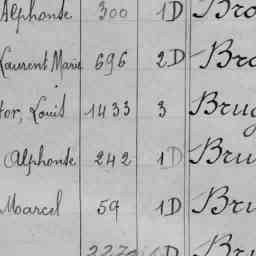 Alphonse 300 1D Bro
Laurent Marie 696 2D Bro
tor, Louis 1433 3 Brug
Alphonse 242 1D Bru
Marcel 59 1D Bru
1D Bru